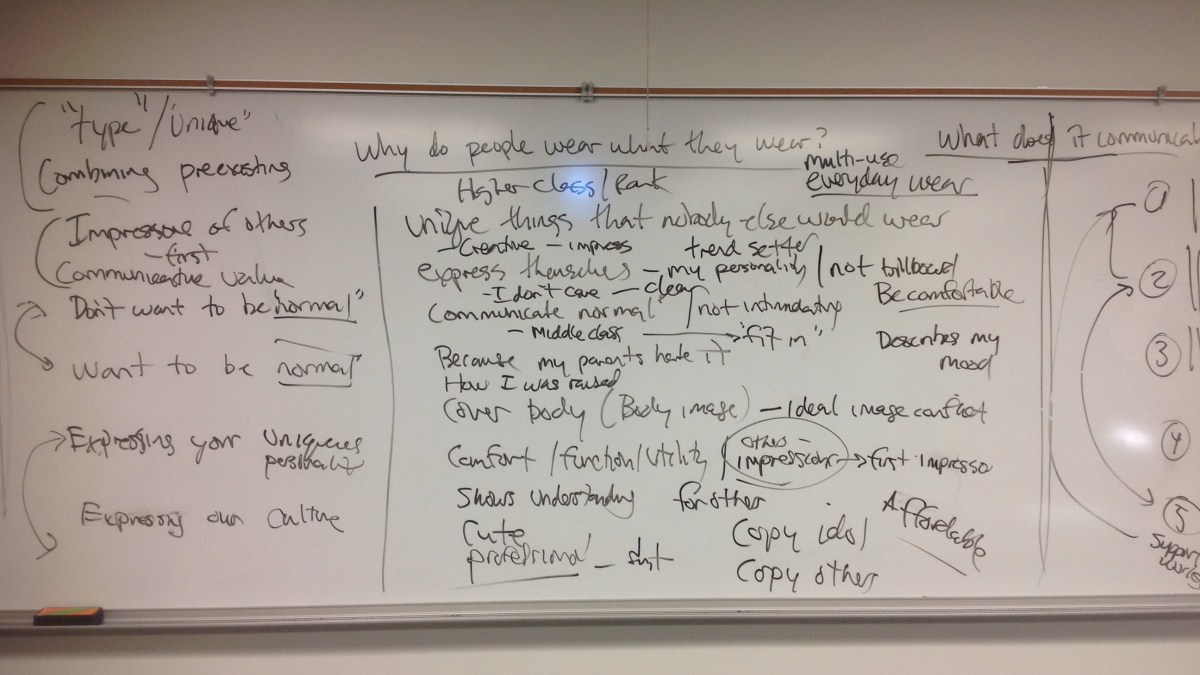 "Type"/"Unique"
Combining preexisting
Impression of others
- first
Communicative value
Don't want to be normal"
Want to be normal"
Expressing your uniqueness
personality
Expressing own culture
Why do people wear what they wear?
Higher class/Rank
multi-use
everyday wear
unique things that nobody else would wear
- Creative - impress trend setter
express themselves - my personality / not billboard
- I don't care - clean
Be comfortable
Communicate normal" / not intimidating
- Middle class → "fit in"
Describes my
mood
Because my parents hate it
How I was raised
Cover body (Body image) - Ideal image conflict
Comfort/function/utility / others -
impressions → first impression
Shows understanding for other
Cute
professional -
Copy idol
Copy other
Affordable
What does it communicat
1
2
3
4
5